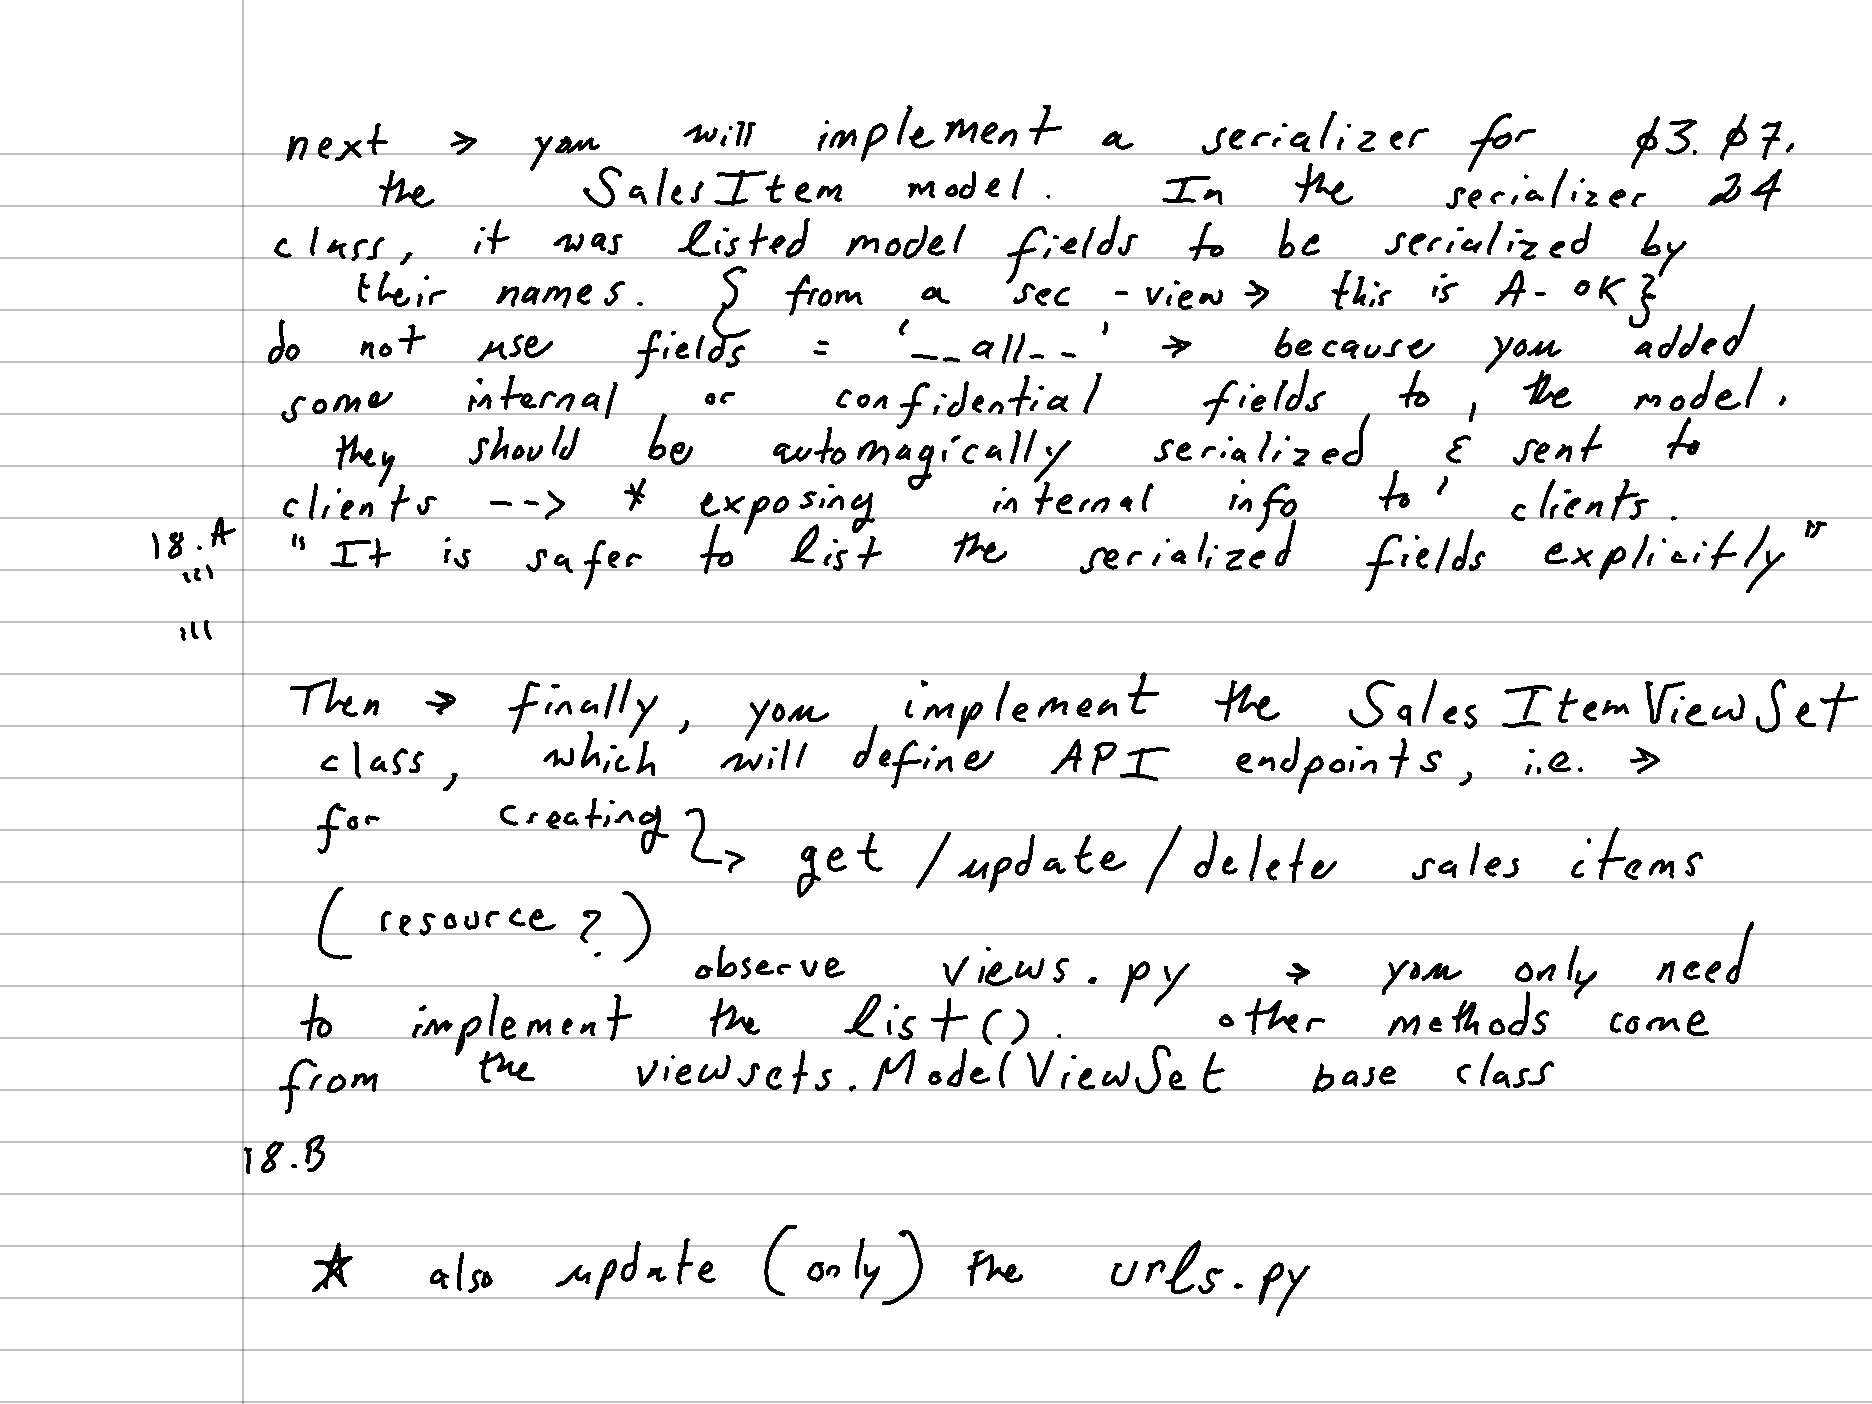 next → you will implement a serializer for 03.07.
the SalesItem model. In the serializer 24
class, it was listed model fields to be serialized by
their names. { from a sec-view → this is A-OK}
do not use fields = '__all--' → because you added
some internal or confidential fields to, the model.
they should be automagically serialized & sent to
clients --> * exposing internal info to' clients.
18.A "It is safer to list the serialized fields explicitly"
Then → finally, you implement the SalesItemViewSet
class, which will define API endpoints, i.e. →
for creating ↳ get /update/delete sales items
(resource?)
observe views.py → you only need
to implement the list(). other methods come
from the viewsets.ModelViewSet base class
18.B
☆ also update (only) the urls.py